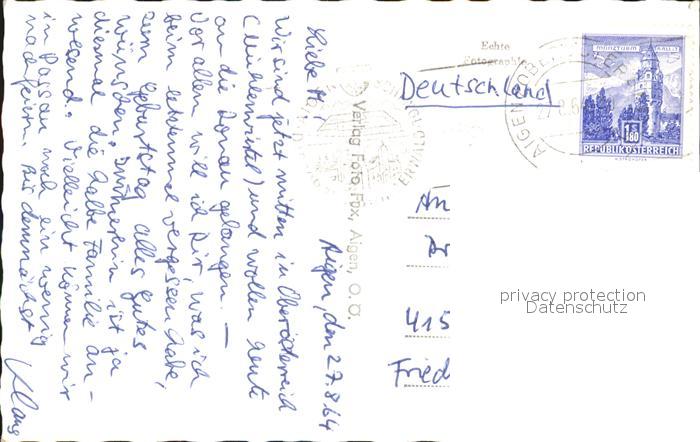 Aigen, den 27.8.64
Liebe
Wir sind jetzt mitten in Oberösterreich
(Mühlenviertel) und wollen heute
an die Donau gelangen. —
Vor allem will ich Dir, was ich
beim letztenmal vergessen habe,
zum Geburtstag alles Gutes
wünschen. Immerhin ist ja
diesmal die halbe Familie an-
wesend. Vielleicht können wir
in Passau noch ein wenig
nachfeiern. Bis demnächst
Klaus
Verlag Foto Fox, Aigen, O. Ö.
Echte
Fotographie
Deutschland
AIGEN
MÜNZTURM HALL I. T.
1.80
REPUBLIK ÖSTERREICH
An
415
Fried
privacy protection
Datenschutz